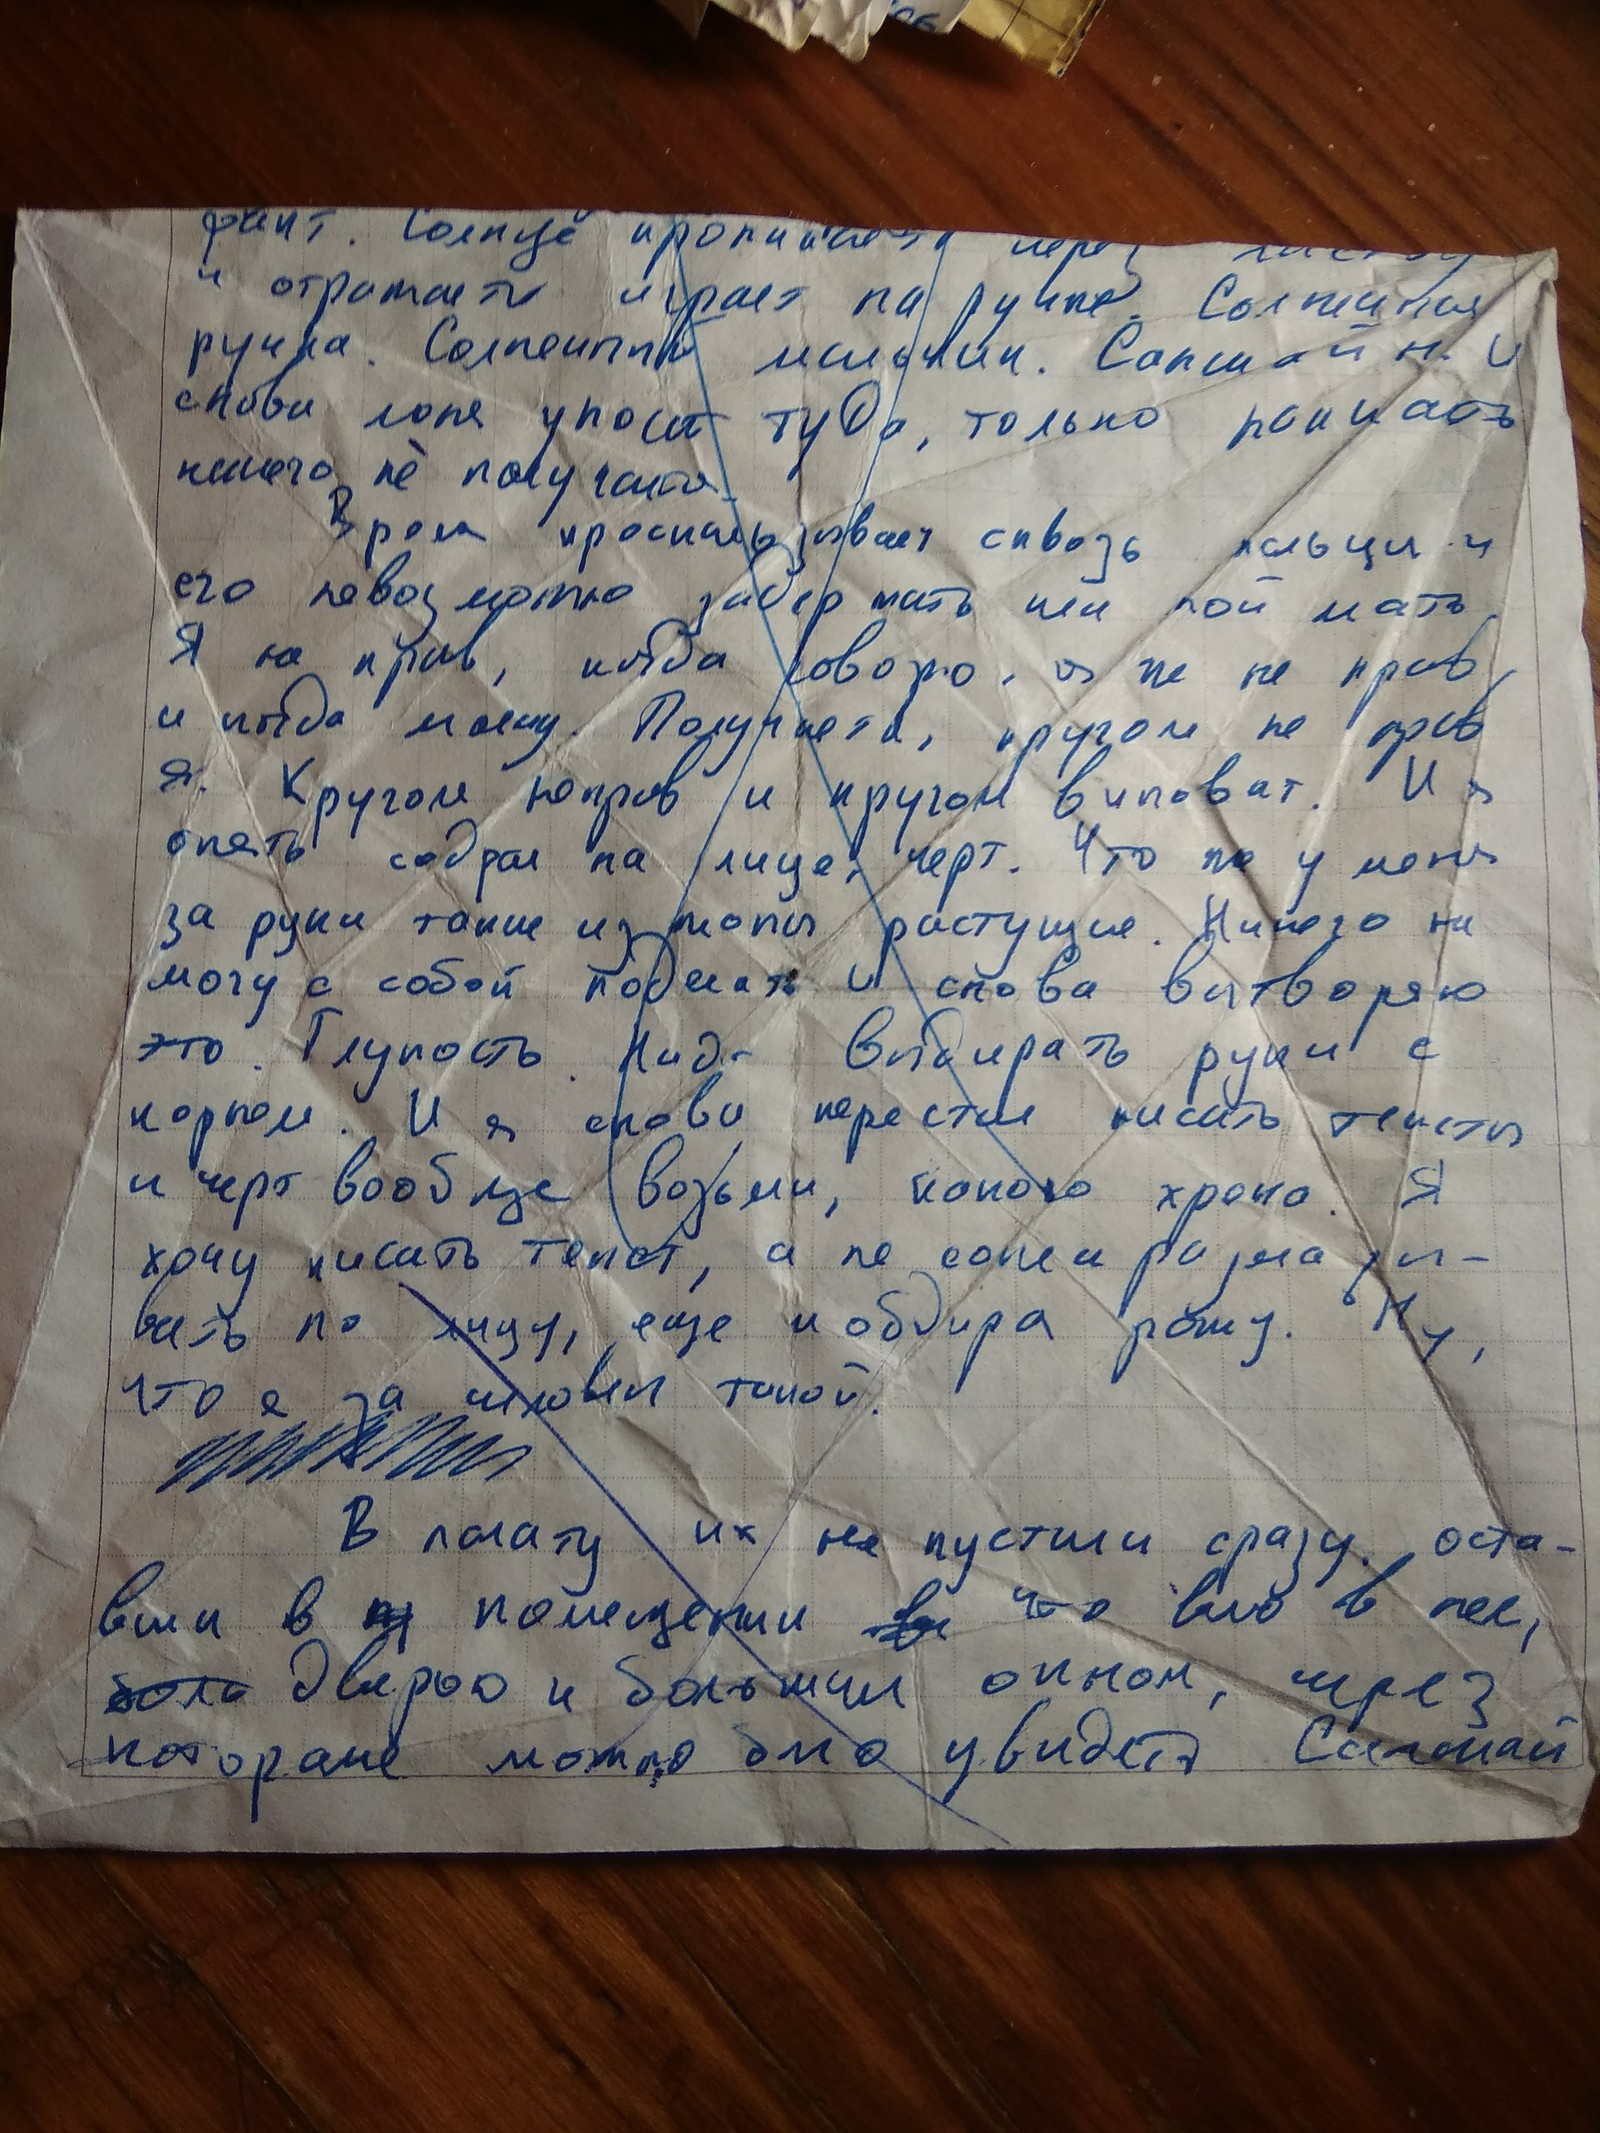 факт. Солнце проникает через
и отражает играет на ручке. Солнечная
ручка. Солнечный мальчик. Саншайн. И
снова меня уносит туда, только писать
ничего не получается.
Время проскальзывает сквозь пальцы и
его невозможно задержать или поймать.
Я не прав, когда говорю, я же не прав,
и когда молчу. Получается, кругом не прав
я. Кругом неправ и кругом виноват. И я
опять содрал на лице, черт. Что же у меня
за руки такие из жопы растущие. Ничего не
могу с собой поделать и снова вытворяю
это. Глупость. Надо выдирать руки с
корнем. И я снова перестал писать тексты
и черт вообще возьми, какого хрена. Я
хочу писать текст, а не сопли размазы-
вать по лицу, еще и обдирая рожу. Ну,
что я за человек такой.
В палату их не пустили сразу, оста-
вили в помещении что вело в нее,
дверью и большим окном, через
которое можно было увидеть